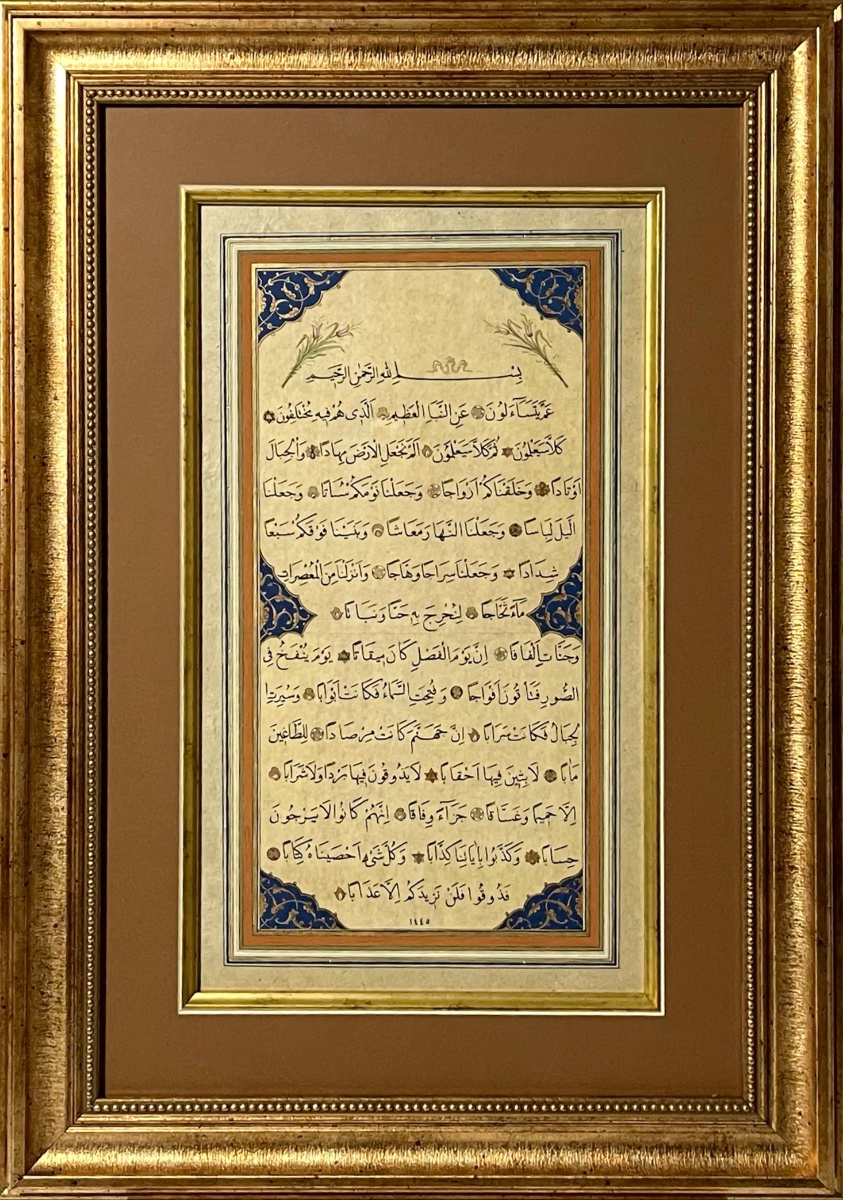 بِسْمِ اللهِ الرَّحْمٰنِ الرَّحِيمِ
عَمَّ يَتَسَاءَلُونَ عَنِ النَّبَاِ الْعَظِيمِ اَلَّذِى هُمْ فِيهِ مُخْتَلِفُونَ
كَلَّا سَيَعْلَمُونَ ثُمَّ كَلَّا سَيَعْلَمُونَ اَلَمْ نَجْعَلِ الْاَرْضَ مِهَادًا وَالْجِبَالَ
اَوْتَادًا وَخَلَقْنَاكُمْ اَزْوَاجًا وَجَعَلْنَا نَوْمَكُمْ سُبَاتًا وَجَعَلْنَا
الَّيْلَ لِبَاسًا وَجَعَلْنَا النَّهَارَ مَعَاشًا وَبَنَيْنَا فَوْقَكُمْ سَبْعًا
شِدَادًا وَجَعَلْنَا سِرَاجًا وَهَّاجًا وَاَنْزَلْنَا مِنَ الْمُعْصِرَاتِ
مَاءً ثَجَّاجًا لِنُخْرِجَ بِهِ حَبًّا وَنَبَاتًا
وَجَنَّاتٍ اَلْفَافًا اِنَّ يَوْمَ الْفَصْلِ كَانَ مِيقَاتًا يَوْمَ يُنْفَخُ فِى
الصُّورِ فَتَأْتُونَ اَفْوَاجًا وَفُتِحَتِ السَّمَاءُ فَكَانَتْ اَبْوَابًا وَسُيِّرَتِ ا
لْجِبَالُ فَكَانَتْ سَرَابًا اِنَّ جَهَنَّمَ كَانَتْ مِرْصَادًا لِلطَّاغِينَ
مَاٰبًا لَابِثِينَ فِيهَا اَحْقَابًا لَا يَذُوقُونَ فِيهَا بَرْدًا وَلَا شَرَابًا
اِلَّا حَمِيمًا وَغَسَّاقًا جَزَاءً وِفَاقًا اِنَّهُمْ كَانُوا لَا يَرْجُونَ
حِسَابًا وَكَذَّبُوا بِاٰيَاتِنَا كِذَّابًا وَكُلَّ شَىْءٍ اَحْصَيْنَاهُ كِتَابًا
فَذُوقُوا فَلَنْ نَزِيدَكُمْ اِلَّا عَذَابًا
١٤٤٥